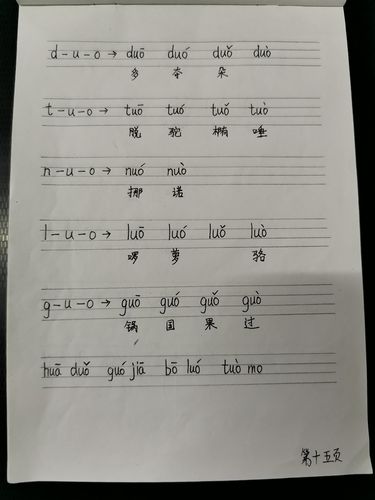 d-u-o→ duō duó duǒ duò
多 夺 朵
t-u-o→ tuō tuó tuǒ tuò
脱 驼 椭 唾
n-u-o→ nuó nuò
挪 诺
l-u-o→ luō luó luǒ luò
啰 萝 骆
g-u-o→ guō guó guǒ guò
锅 国 果 过
huā duǒ guó jiā bō luó tuò mo
第十五页